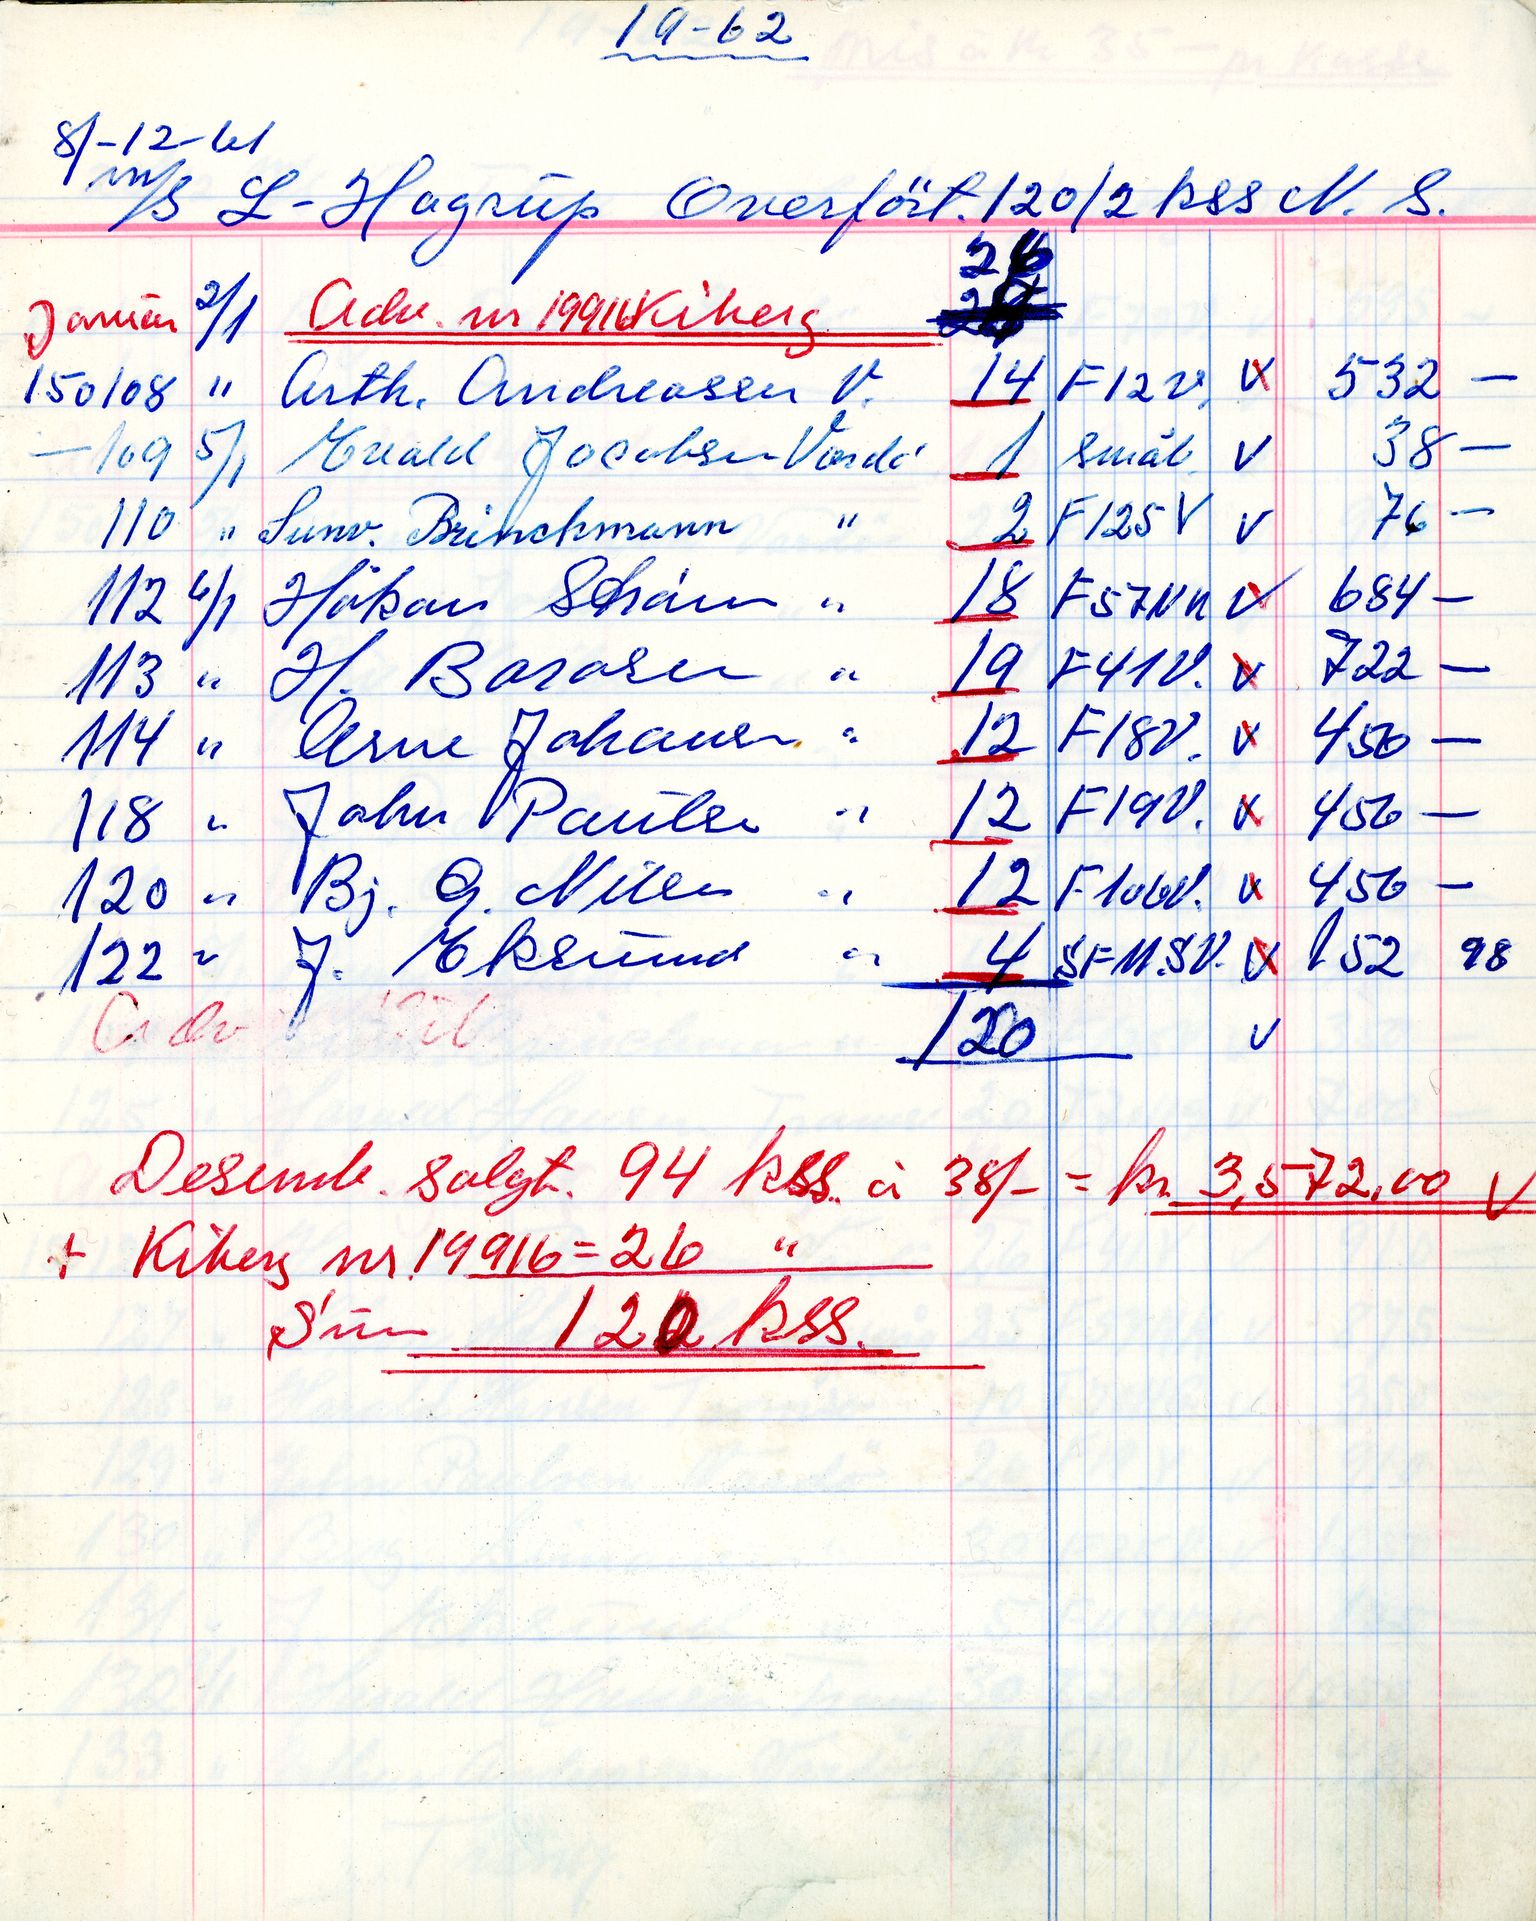 19-62
8/-12-61
m/s L-Hagrup Overfört. 120/2 kss N. S.
26
Januar 2/1 Adv. nr 19916 Kiberg
150108 " Arth. Andreassen V. 14 F12V. V 532 —
—109 5/1 Evald Jacobsen Vardö 1 småb. V 38 —
110 " Sunv. Brinchmann " 2 F125V V 76 —
112 6/1 Håkon " 18 F57VN V 684 —
113 " H. Basasen " 19 F41V. V 722 —
114 " Arne Johansen " 12 F18V. V 456 —
118 " John Paulsen " 12 F19V. V 456 —
120 " Bj. G. Nilsen " 12 F106V. V 456 —
122 " J. Eksund " 4 SFM.SV. V 152 98
120 V
Desemb. solgt. 94 kss. à 38/- = kr. 3,572,00 V
+ Kiberg nr. 19916 = 26 "
Sum 120 kss.